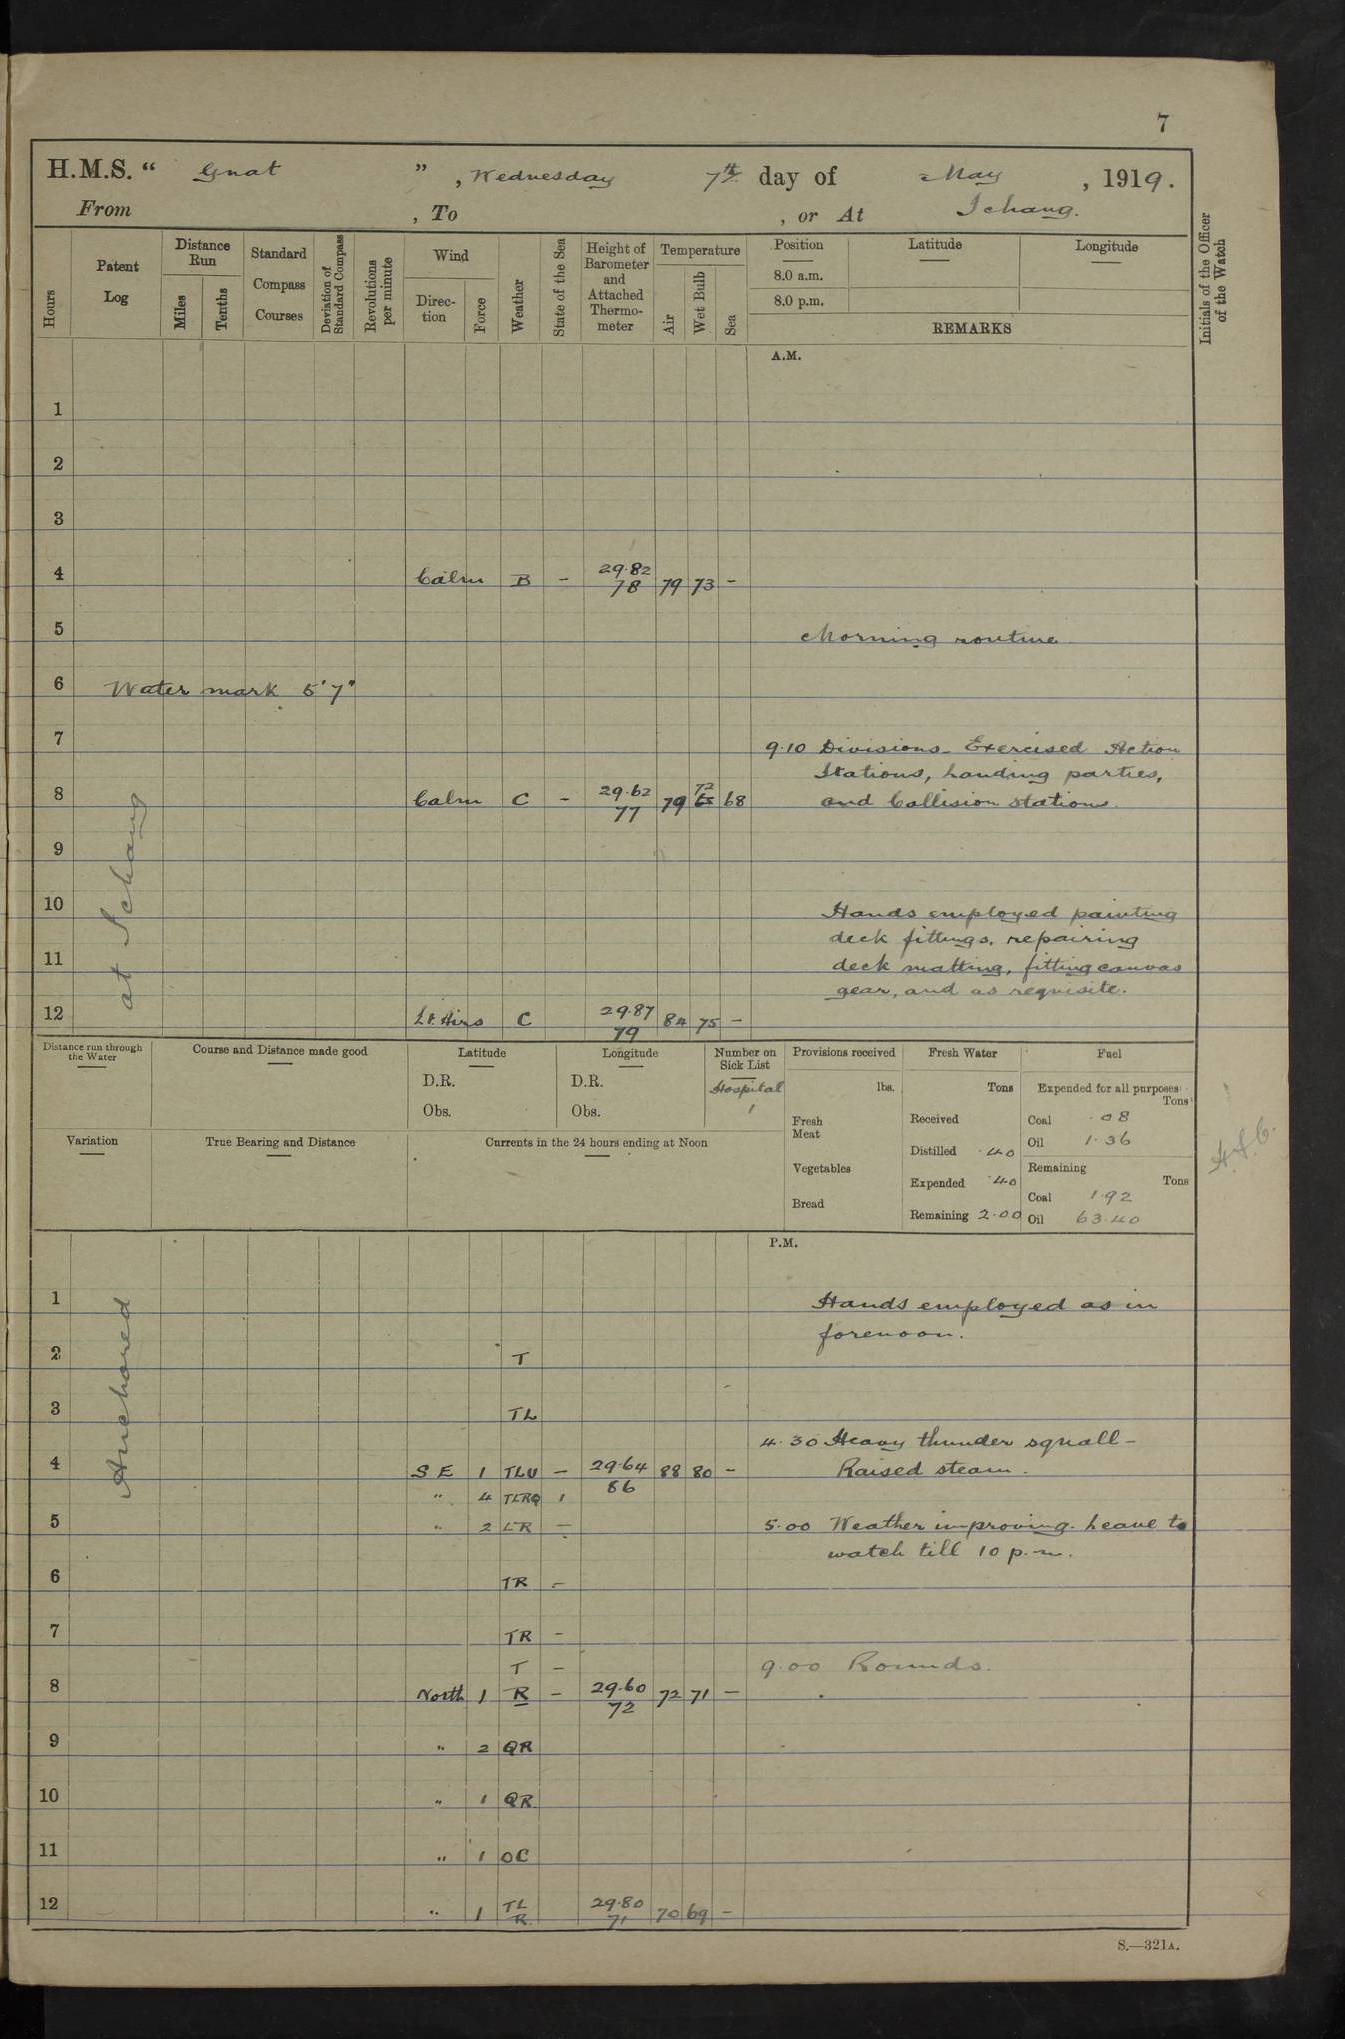 7
H.M.S. “ Gnat ” , Wednesday 7th day of May , 1919.
From , To , or At Ichang.
Hours
Patent Log
Distance Run
Miles
Tenths
Standard Compass Courses
Deviation of Standard Compass
Revolutions per minute
Wind
Direction
Force
Weather
State of the Sea
Height of Barometer and Attached Thermometer
Temperature
Air
Wet Bulb
Sea
Position
8.0 a.m.
8.0 p.m.
Latitude
Longitude
REMARKS
Initials of the Officer of the Watch
A.M.
1
2
3
4 Calm B – 29.82 78 79 73 –
5 Morning routine
6 Water mark 5' 7"
7 9.10 Divisions. Exercised Action
Stations, landing parties,
8 Calm C – 29.62 77 79 72 68 and Collision stations.
at Ichang
9
10 Hands employed painting
deck fittings, repairing
11 deck matting, fitting canvas
gear, and as requisite.
12 Lt. Airs C 29.87 79 84 75 –
Distance run through the Water
Course and Distance made good
Latitude
D.R.
Obs.
Longitude
D.R.
Obs.
Number on Sick List
Hospital
1
Provisions received
lbs.
Fresh Meat
Vegetables
Bread
Fresh Water
Tons
Received
Distilled .40
Expended .40
Remaining 2.00
Fuel
Expended for all purposes
Tons
Coal .08
Oil 1.36
Remaining
Tons
Coal 1.92
Oil 63.40
Variation
True Bearing and Distance
Currents in the 24 hours ending at Noon
P.M.
Anchored
1 Hands employed as in
forenoon.
2 T
3 TL
4.30 Heavy thunder squall –
4 S E 1 TLU – 29.64 86 88 80 – Raised steam.
" 4 TLRQ 1
5 " 2 LR – 5.00 Weather improving. Leave to
watch till 10 p.m.
6 TR –
7 TR –
T – 9.00 Rounds.
8 North 1 R – 29.60 72 72 71 –
9 " 2 QR
10 " 1 QR
11 " 1 OC
12 " 1 TL R 29.80 71 70 69 –
S.—321A.